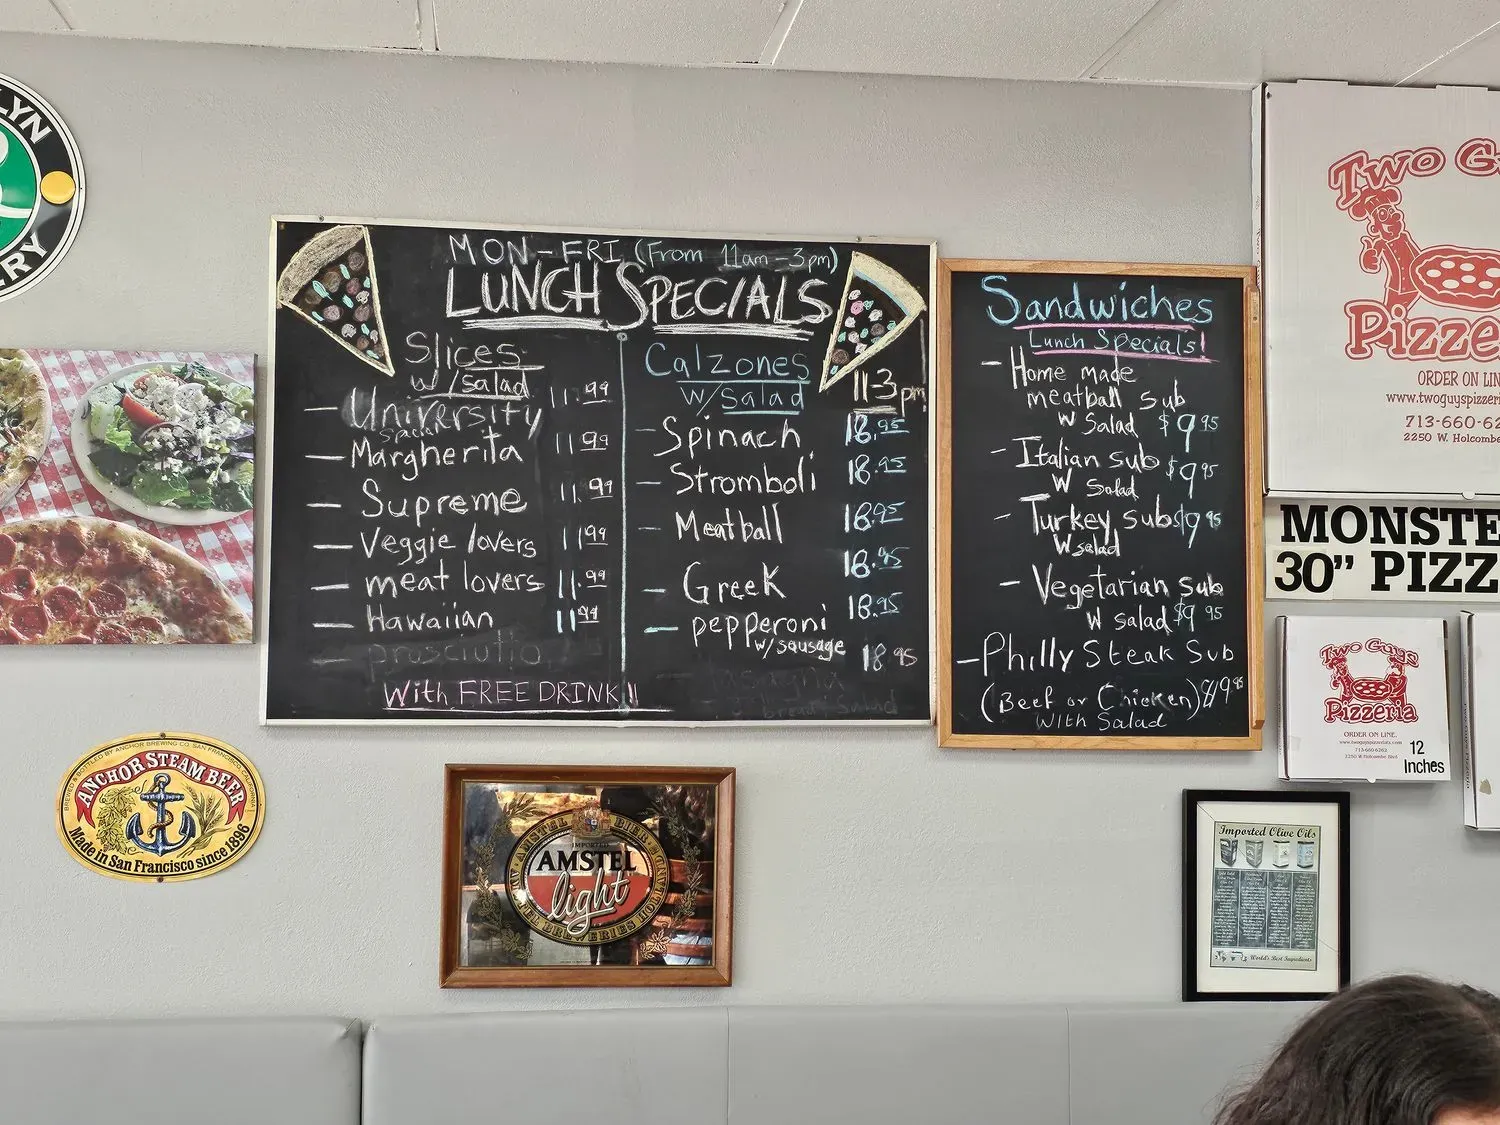 MON-FRI (From 11am-3pm)
LUNCH SPECIALS
Slices
w/salad
— University 11.99
special
— Margherita 11.99
— Supreme 11.99
— Veggie lovers 11.99
— meat lovers 11.99
— Hawaiian 11.99
prosciutto
With FREE DRINK!!
Calzones
W/Salad
11-3pm
— Spinach 18.95
— Stromboli 18.95
— Meatball 18.95
— Greek 18.95
— pepperoni 18.95
w/sausage 18.95
Sandwiches
Lunch Specials!
— Home made
meatball sub
W Salad $9.95
— Italian sub $9.95
W Salad
— Turkey sub $9.95
W salad
— Vegetarian sub
W salad $9.95
— Philly Steak Sub
(Beef or Chicken)
With Salad
Two G
Pizze
ORDER ON LIN
www.twoguyspizzeri
713-660-62
2250 W. Holcombe
MONSTE
30" PIZZ
Two Guys
Pizzeria
ORDER ON LINE.
713-660-6262
2250 W Holcombe Blvd
12
Inches
LYN
ERY
BREWED & BOTTLED BY ANCHOR BREWING CO. SAN FRANCISCO, CALIFORNIA
ANCHOR STEAM BEER
Made in San Francisco since 1896
AMSTEL BIER
IMPORTED
AMSTEL
light
Imported Olive Oils
World's Best Ingredients